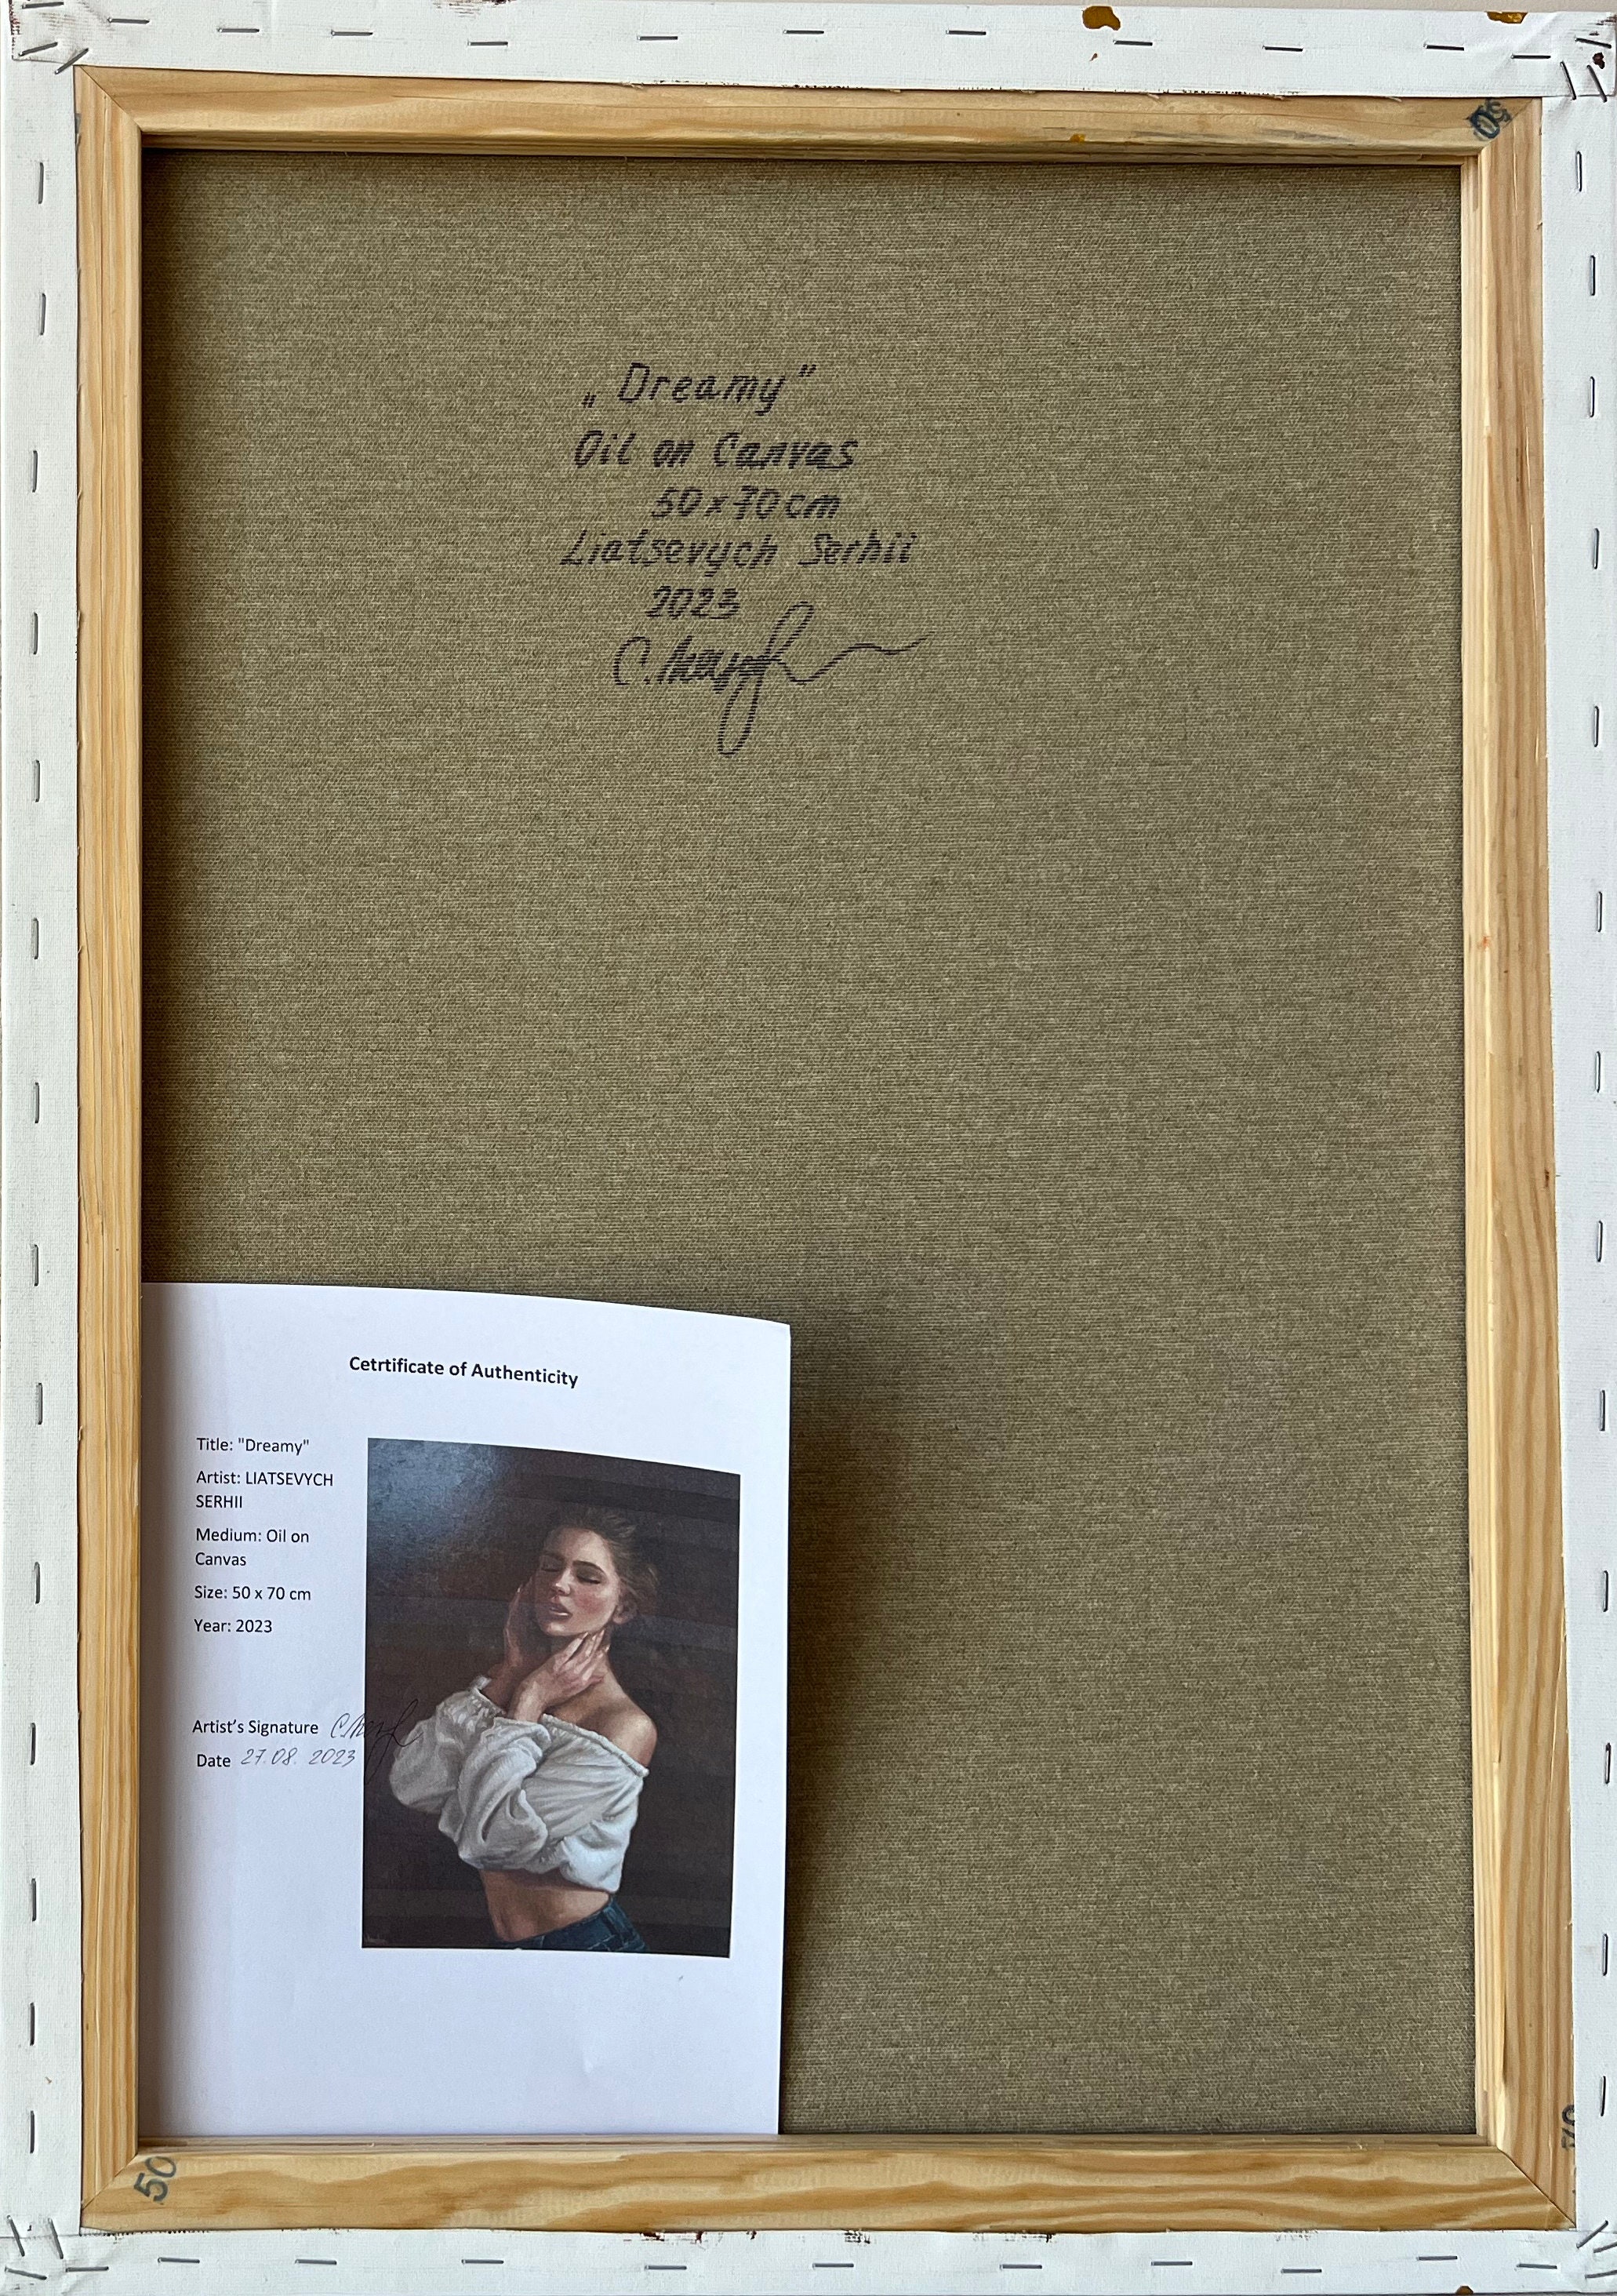 50
„Dreamy”
Oil on Canvas
50x70cm
Liatsevych Serhii
2023
Cetrtificate of Authenticity
Title: "Dreamy"
Artist: LIATSEVYCH
SERHII
Medium: Oil on
Canvas
Size: 50 x 70 cm
Year: 2023
Artist’s Signature
Date 27.08. 2023
50
70